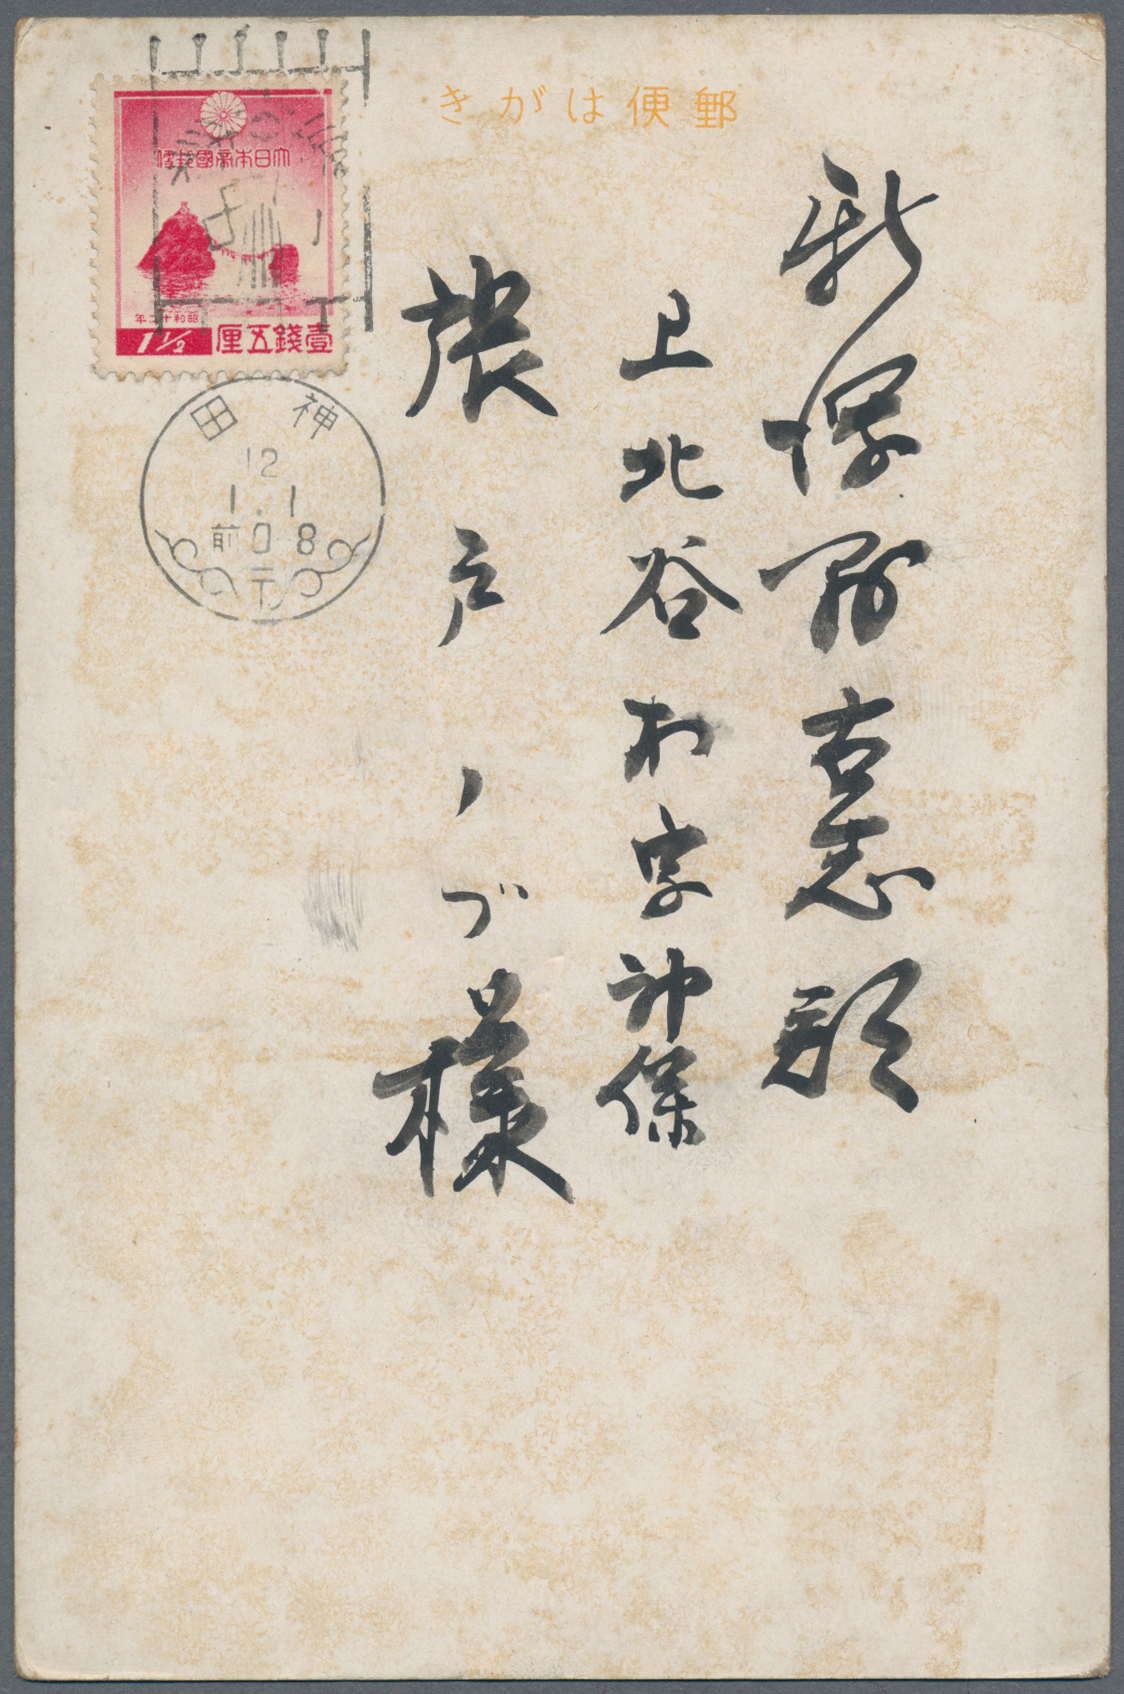 郵便はがき
大日本帝國郵便
昭和十二年
壹錢五厘
1½
神田
12
1.1
前0-8
新潟縣古志郡
上北谷村字神保
農戸ノブ様